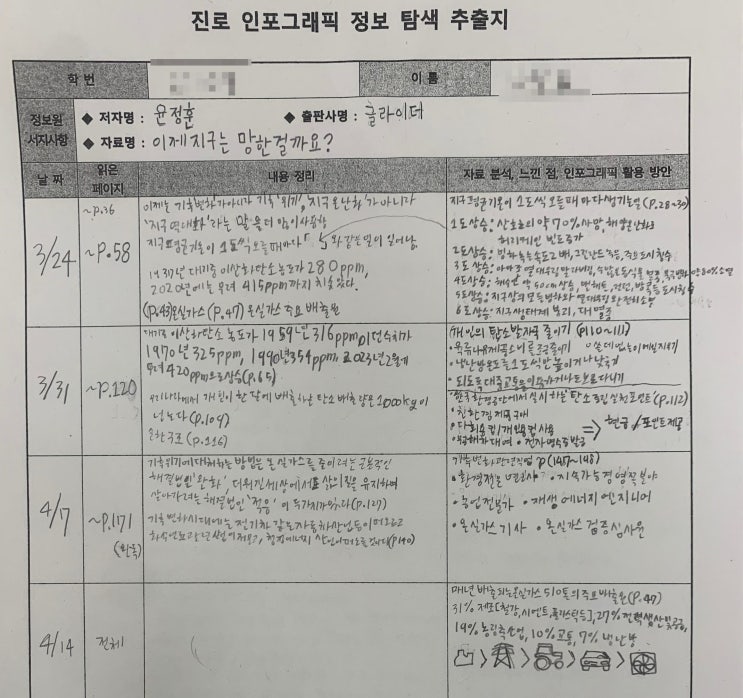 진로 인포그래픽 정보 탐색 추출지
학 번
이 름
정보원 서지사항
◆ 저자명 : 윤정훈 ◆ 출판사명 : 글라이더
◆ 자료명 : 이제 지구는 망한 걸까요?
날 짜 읽은 페이지 내용 정리 자료 분석, 느낀 점, 인포그래픽 활용 방안
3/24
~p.36
~p.58
이제는 기후변화가 아니라 기후'위기', '지구온난화'가 아니라
라는 말을 더 많이 사용함
지구 평균기온이 1도씩 오를 때마다 와 같은 일이 일어남
대기 중 이산화탄소 농도가 280ppm,
2020년에는 무려 415ppm까지 치솟았다.
(p.43) 온실가스 (p.47) 온실가스 주요 배출원
지구 평균기온이 1도씩 오를 때마다 생기는 일 (p.28~30)
1도 상승: 산호초의 약 70% 사망, 해양온난화로
허리케인 빈도 증가
2도 상승: 빙하 녹는 속도 2배,
3도 상승: 아마존 열대우림
4도 상승: 해수면 약 50cm 상승,
5도 상승: 지구상의 모든 빙하와 열대우림 완전히 소멸
6도 상승: 지구 생태계 붕괴, 대멸종
3/31
~p.120
대기 중 이산화탄소 농도가 1959년 316ppm이던 수치가
1970년 325ppm, 1990년 354ppm, 2023년 2월에
무려 420ppm으로 상승 (p.65)
우리나라에서 개인이 한 달에 배출하는 탄소 배출량은 1000kg이
넘는다 (p.109)
순환구조 (p.116)
개인의 탄소발자국 줄이기 (p.110~111)
• 육류나 유제품 소비를 조금 줄이기 • 쓸데없는 이메일 지우기
• 냉난방 온도를 1도씩만 높이거나 낮추기
• 되도록 대중교통을 이용하거나 도보로 다니기
한국환경공단에서 실시하는 '탄소중립 실천포인트' (p.112)
• 친환경 제품 구매
• 다회용컵/개인용컵 사용
대여 • 전자영수증 발급
⇒ 현금/포인트 제공
4/7
~p.171
(완독)
기후위기에 대처하는 방법은 온실가스를 줄이려는 근본적인
해결법인 '완화', 더워진 세상에서도 삶의 질을 유지하며
살아가려는 해결법인 '적응' 이 두가지가 있다 (p.127)
기후변화시대에는 전기차 같은 자동차 산업 등이 떠오르고
화석연료 관련 청정에너지 산업이 떠오를 것이다 (p.140)
기후변화 관련 직업 p(147~148)
• 환경전문 변호사 • 지속가능경영 분야
• 농업전문가 • 재생에너지 엔지니어
• 온실가스 기사 • 온실가스 검증심사원
4/14
전체
매년 배출되는 온실가스 510톤의 주요 배출원 (p.47)
31% 제조 [철강, 시멘트, 플라스틱 등], 27% 전력 생산 및 공급,
19% 농림축산업, 10% 교통, 7% 냉난방